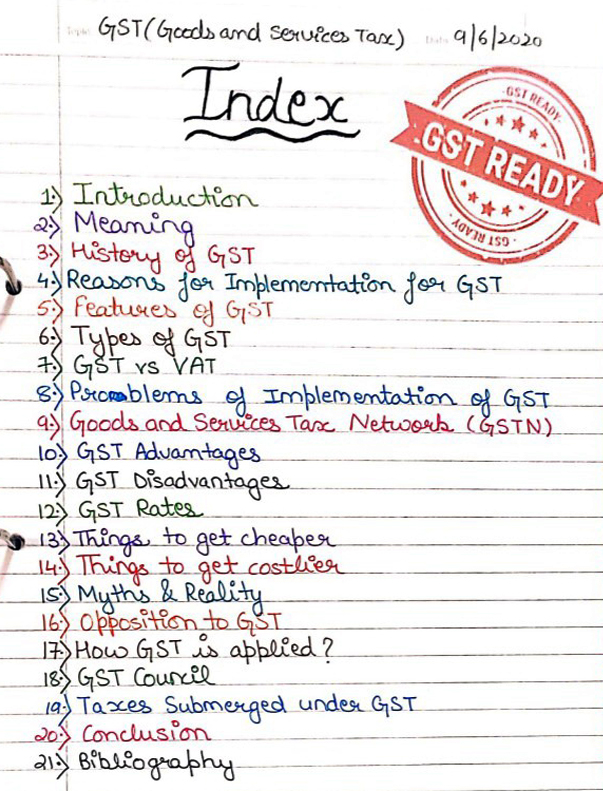 GST (Goods and Services Tax) Date 9/6/2020
Index
·GST READY·
GST READY
·GST READY·
1.) Introduction
2.) Meaning
3.) History of GST
4.) Reasons for Implementation for GST
5.) Features of GST
6.) Types of GST
7.) GST vs VAT
8.) Problems of Implementation of GST
9.) Goods and Services Tax Network (GSTN)
10.) GST Advantages
11.) GST Disadvantages
12.) GST Rates
13.) Things to get cheaper
14.) Things to get costlier
15.) Myths & Reality
16.) Opposition to GST
17.) How GST is applied?
18.) GST Council
19.) Taxes Submerged under GST
20.) Conclusion
21.) Bibliography